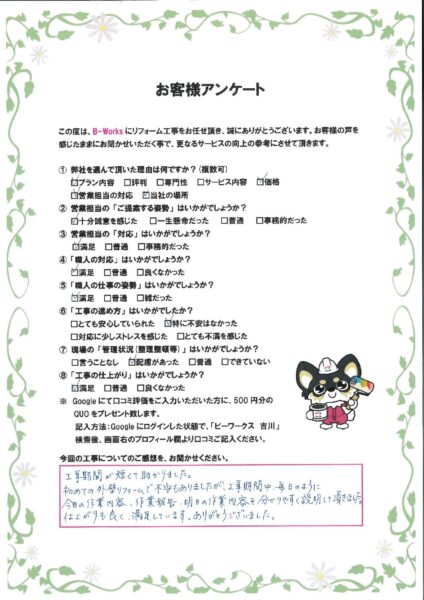 お客様アンケート
この度は、B-Worksにリフォーム工事をお任せ頂き、誠にありがとうございます。お客様の声を
感じたままにお聞かせいただく事で、更なるサービスの向上の参考にさせて頂きます。
① 弊社を選んで頂いた理由は何ですか？(複数可)
☑プラン内容 □評判 □専門性 □サービス内容 ☑価格
□営業担当の対応 ☑当社の場所
② 営業担当の「ご提案する姿勢」はいかがでしょうか？
☑十分誠意を感じた □一生懸命だった □普通 □事務的だった
③ 営業担当の「対応」はいかがでしょうか？
☑満足 □普通 □事務的だった
④ 「職人の対応」はいかがでしょうか？
☑満足 □普通 □良くなかった
⑤ 「職人の仕事の姿勢」はいかがでしょうか？
☑満足 □普通 □雑だった
⑥ 「工事の進め方」はいかがでしたか？
□とても安心していられた ☑特に不安はなかった
□対応に少しストレスを感じた □とても不満を感じた
⑦ 現場の「管理状況(整理整頓等)」はいかがでしょうか？
□言うことなし ☑配慮があった □普通 □できていない
⑧ 「工事の仕上がり」はいかがでしょうか？
☑満足 □普通 □良くなかった
※ Googleにて口コミ評価をご入力いただいた方に、500円分の
QUOをプレゼント致します。
記入方法：Googleにログインした状態で、「ビーワークス 吉川」
検索後、画面右のプロフィール欄より口コミご記入ください。
今回の工事についてのご感想を、お聞かせください。
工事期間が短くて助かりました。
初めての外壁リフォームで不安もありましたが、工事期間中、毎日のように
今日の作業内容、作業報告、明日の作業内容を分かりやすく説明して頂きました。
仕上がりも良く、満足しています。ありがとうございました。